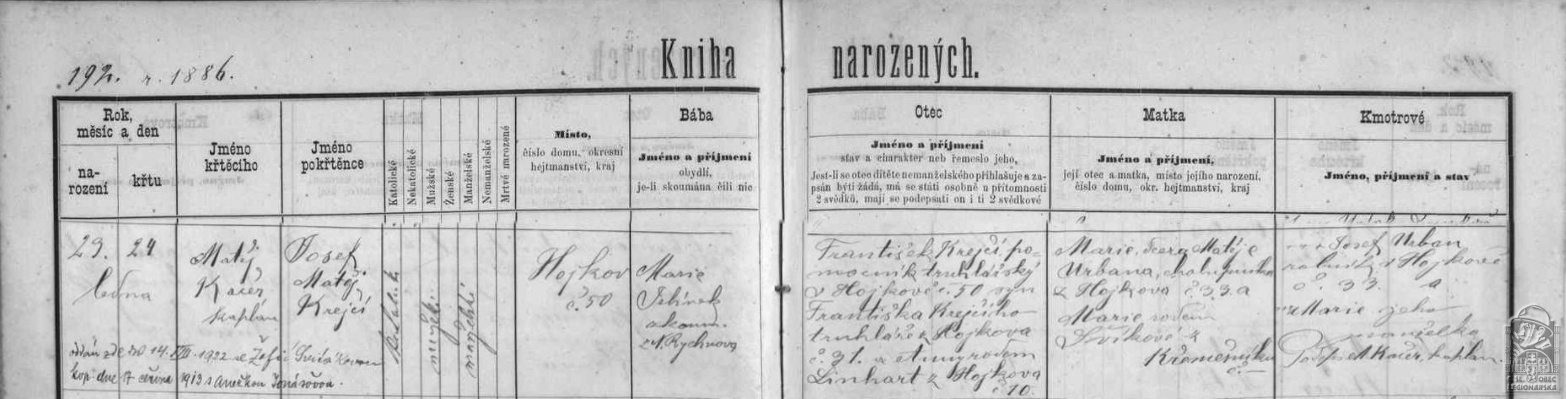 192. r. 1886.
Kniha
narozených.
Rok,
měsíc a den
na-
rození
křtu
Jméno
křtěcího
Jméno
pokřtěnce
Katolické
Nekatolické
Mužské
Ženské
Manželské
Nemanželské
Mrtvě narozené
Místo,
číslo domu, okresní
hejtmanství, kraj
Bába
Jméno a příjmení
obydlí,
je-li skoumána čili nic
Otec
Jméno a příjmení
stav a charakter neb řemeslo jeho,
Jest-li se otec dítěte nemanželského přihlašuje a za-
psán býti žádá, má se státi osobně u přítomnosti
2 svědků, mají se podepsati on i ti 2 svědkové
Matka
Jméno a příjmení,
její otec a matka, místo jejího narození,
číslo domu, okr. hejtmanství, kraj
Kmotrové
Jméno, příjmení a stav
23. 24
ledna
Matěj
Kačer
kaplán
Josef
Matěj
Krejčí
mužské
manželské
Hojkov
č. 50
Marie
Jelínek
z Rychnova
František Krejčí, po-
mocník truhlářský
v Hojkově č. 50 syn
Františka Krejčího
truhláře z Hojkova
č. 31. a Anny rodem
Linhart z Hojkova
č. 10.
Marie, dcera Matěje
Urbana, chalupníka
z Hojkova č. 33. a
Marie rodem
Křemešníku
č. —
Josef Urban
rolník z Hojkově
č. 33. a
Marie jeho
manželka
Matěj Kačer, kaplan
14. VIII 1922
kop. dne 17 června 1913 s Anežkou
OBEC
LEGIONÁŘSKÁ